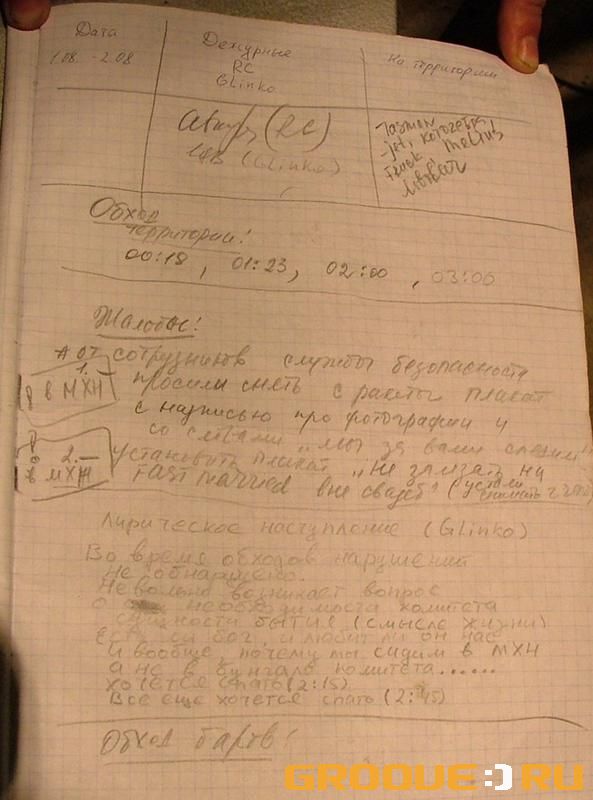 Дата
1.08. -2.08
Дежурные
RC
GLinko
На территории
(RC)
(GLinko)
Tasman
Обход
территории!
00:18, 01:23, 02:00, 03:00
Жалобы:
* от сотрудников службы безопасности
1. —
просили снять с ракеты плакат
в МХН
с надписью про фотографии и
со словами "мы за вами следим"
2. —
установить плакат "Не залезать на
в МХН
FAST MARRIED вне свадеб" (устали
снимать с
Лирическое наступление (GLinko)
Во время обходов нарушений
не обнаружено.
Невольно возникает вопрос
о необходимости комитета
сущности бытия (смысле жизни)
Есть ли бог, и любит ли он нас
И вообще, почему мы сидим в МХН
а не в бунгало комитета......
хочется спать (2:15)
Все еще хочется спать (2:45)
Обход баров!
GROOVE:)RU